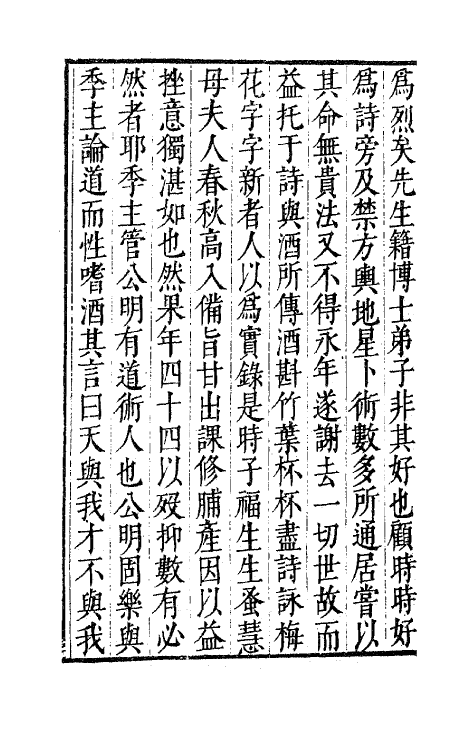 爲烈矣先生籍博士弟子非其好也顧時時好
爲詩旁及禁方輿地星卜術數多所通居嘗以
其命無貴法又不得永年遂謝去一切世故而
益托于詩與酒所傳酒斟竹葉杯杯盡詩詠梅
花字字新者人以爲實錄是時子福生生蚤慧
母夫人春秋高入備旨甘出課修脯產因以益
挫意獨湛如也然果年四十四以歿抑數有必
然者耶季主管公明有道術人也公明固樂與
季主論道而性嗜酒其言曰天與我才不與我